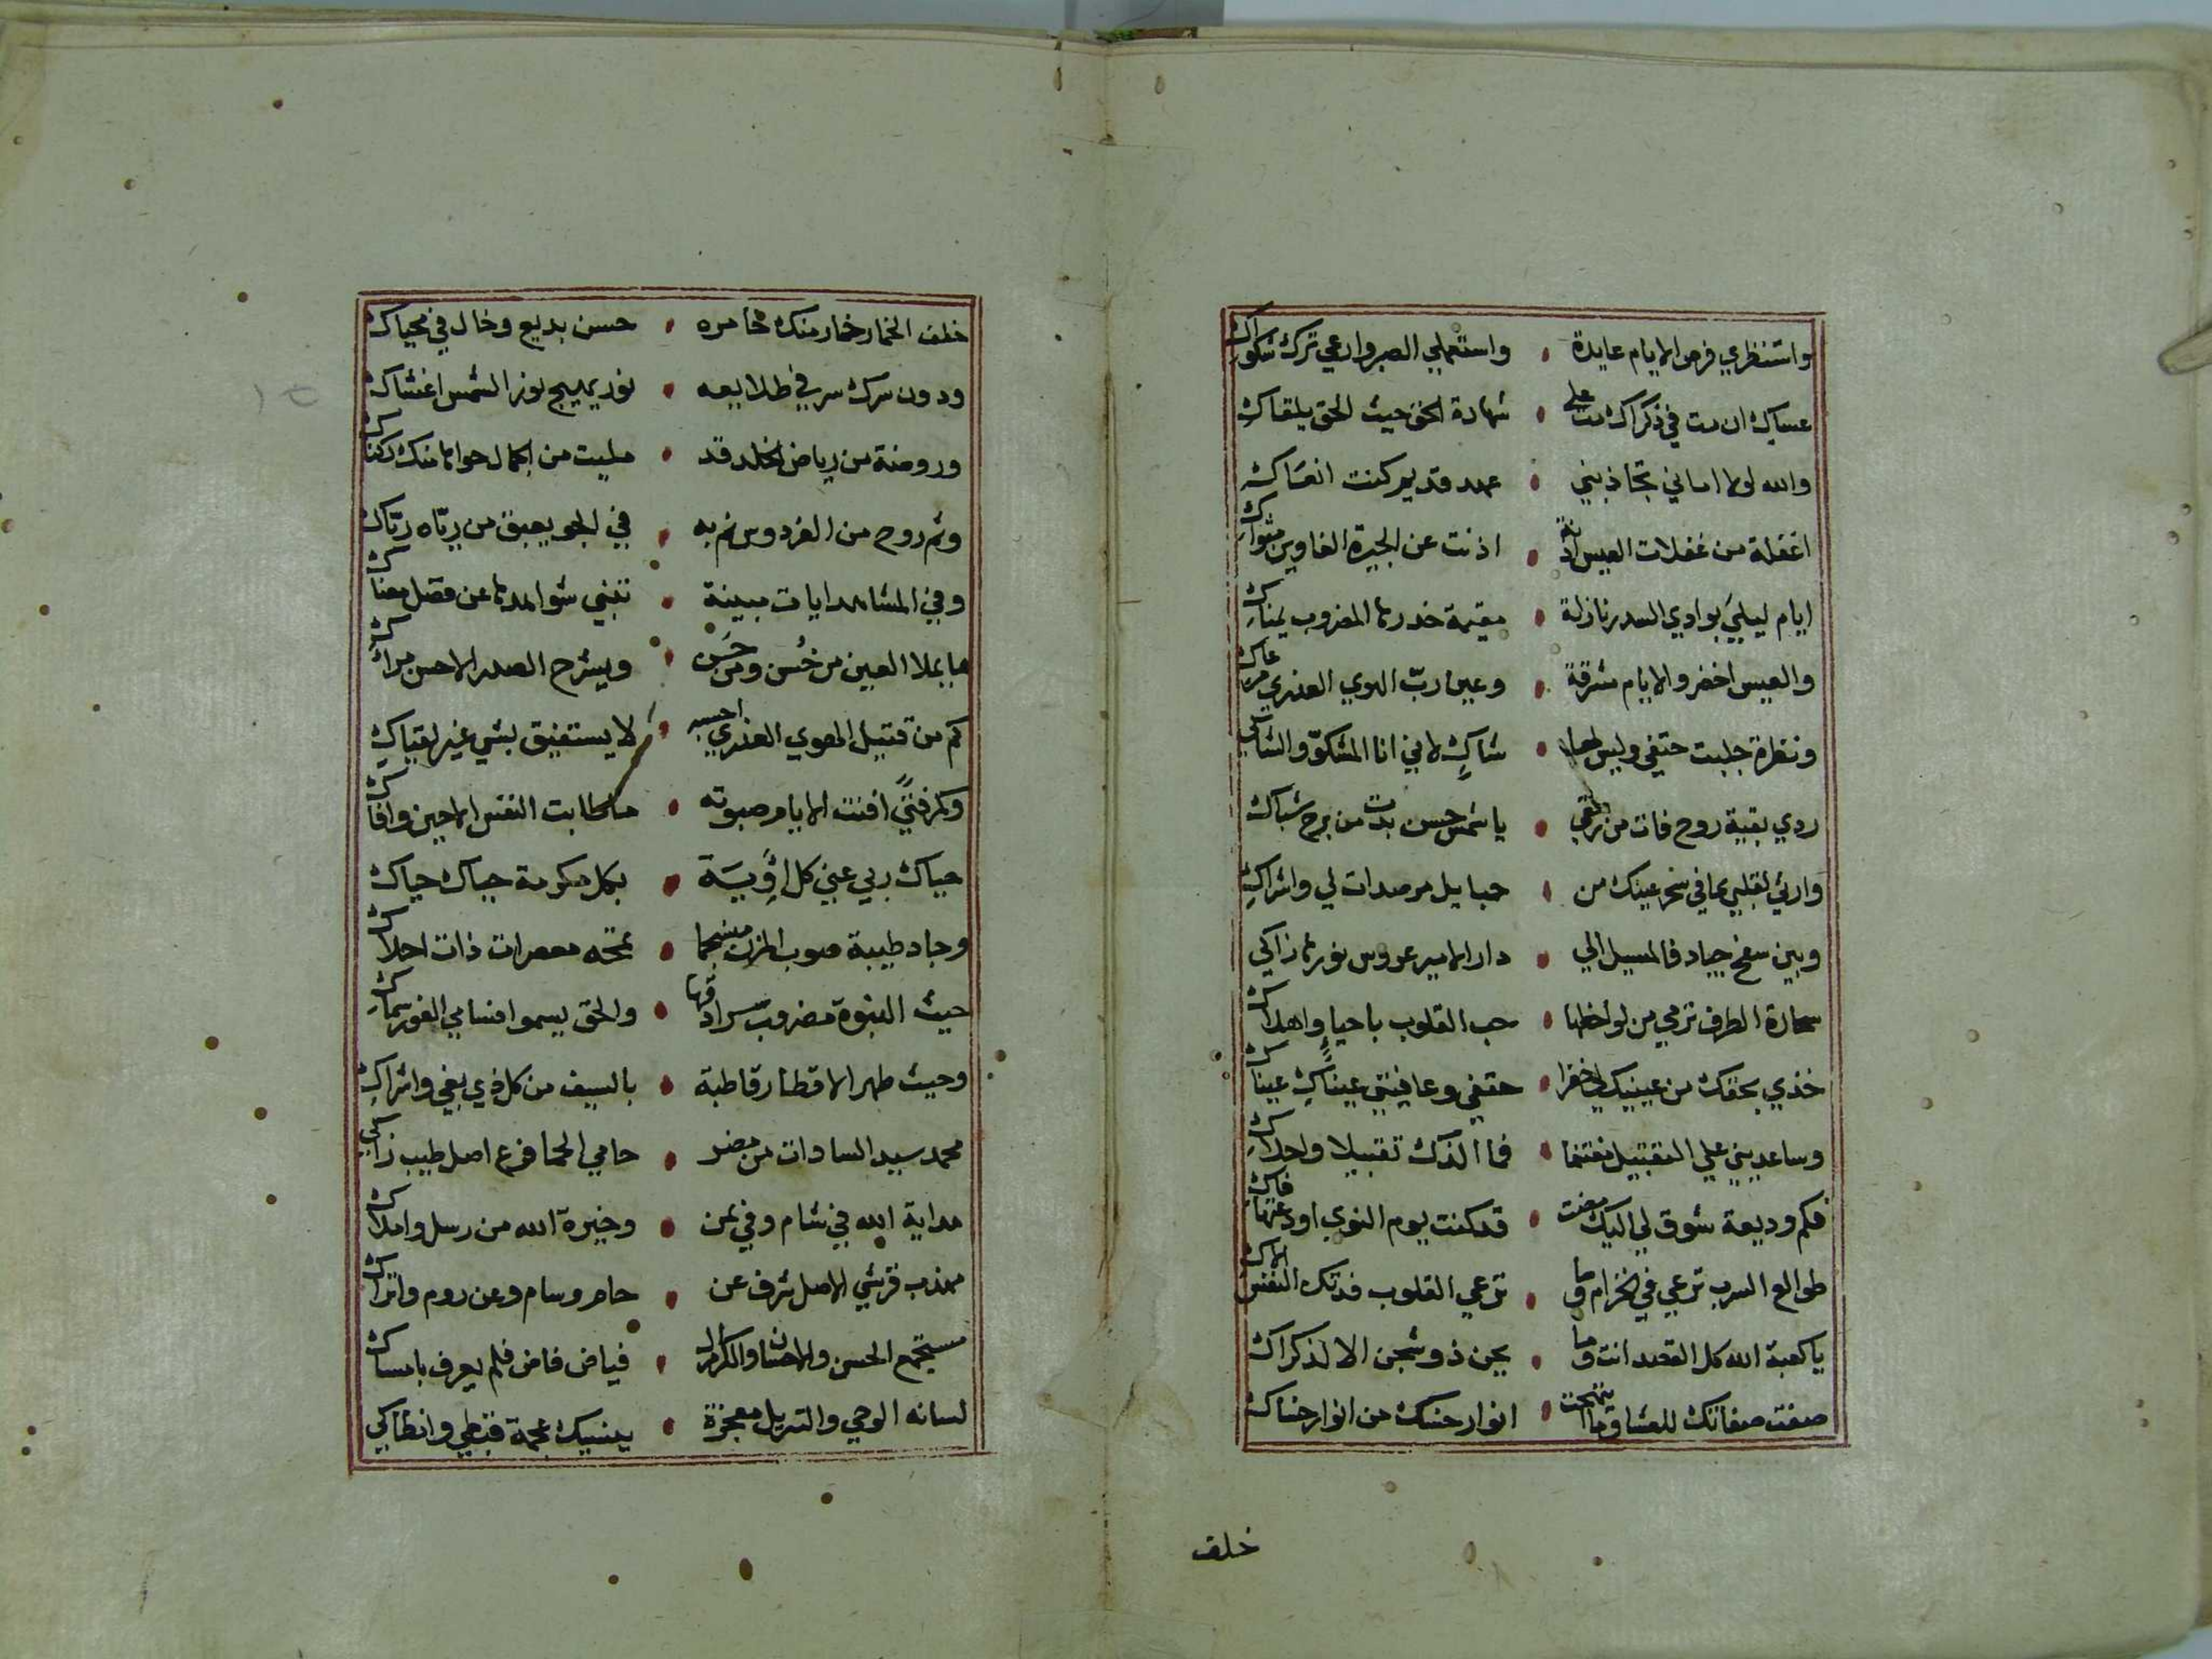 واستنظري فرص الايام عايدة • واستعملي الصبر وارعي ترك شكواك
عساك ان مت في ذكراك مت علي • شهادة الحق حيث الحق يلقاك
والله لولا اماني تجاذبني • عهد قديم كنت انساك
اغفلة من غفلات العيس اذنة • اذنت عن الجيرة الغاوين مثواك
ايام ليلي بوادي السدر نازلة • مقيمة خدرها المضروب يمناك
والعيس اخضر والايام مشرقة • وعين رب الهوي العذري مرعاك
ونظرة جلبت حتفي وليس لها • شاكٍ لاني انا المشكوّ والشاكي
ردي بقية روح فات من رمقي • يا شمس حسن بدت من برج شباك
وارثي لقلبي مما في سحر عينك من • حبايل مرصدات لي واشراك
وبين سفح جياد فالمسيل الي • دار الامير عروس نورها زاكي
سحارة الطرف ترمي من لواحظها • حب القلوب باحيا واهلاك
خذي بحقك من عينيك لي خفرا • حتفي وعافيتي عيناك عيناك
وساعديني علي التقبيل مغتنما • فما الذك تقبيلا واحلاك
فكم وديعة شوق لي اليك مضت • قد كنت يوم النوي اودعتها فاك
طوالع السرب ترعي في الخزام وما • ترعي القلوب فدتك النفس الاك
يا كعبة الله كل القصد انت وما • يحن ذو شجن الا لذكراك
صفت صفاتك للعشاق وما ابتهجت • انوار حسنك من انوار حسناك
خلف
خلف الخمار خمار منك مخامره • حسن بديع وخال في محياك
ودون سرك سر في طلايعه • نور يهيج نور الشمس اغشاك
وروضة من رياض الخلد قد • مليت من الجمال حواها منك ركناك
وثم روح من الفردوس نم به • في الجو يعبق من ريّاه ريّاك
وفي المشاهد ايات مبينة • تنبي شواهدها عن فضل معناك
ما يملا العين من حُسن ومن حَسن • ويشرح الصدر الا حسن مراك
كم من قتيل الهوي العذري احسبه • لا يستفيق بشي غير لقياك
وكم فتيً افنت الايام صبوته • ما طابت النفس الا حين وافاك
حياك ربي عني كل اوبية • بكل مكرمة حياك حياك
وجاد طيبة صوب المزن منسجما • تمجه معصرات ذات احلاك
حيث النبوة مضروب سرادقها • والحق يسموا فسامي الفور سماك
وحيث طهر الاقطار قاطبة • بالسيف من كل ذي بغي واشراك
محمد سيد السادات من مضر • حامي الحما فرع اصل طيب زاكي
هداية الله في شام وفي يمن • وخيرة الله من رسل واملاك
مهذب قرشي الاصل شرف عن • حام وسام وعن روم واتراك
مستجمع الحسن والاحسان والكرم ال • فياض فاض فلم يعرف بامساك
لسانه الوحي والتنزيل معجزة • ينسيك عجمة قبطي وانطاكي